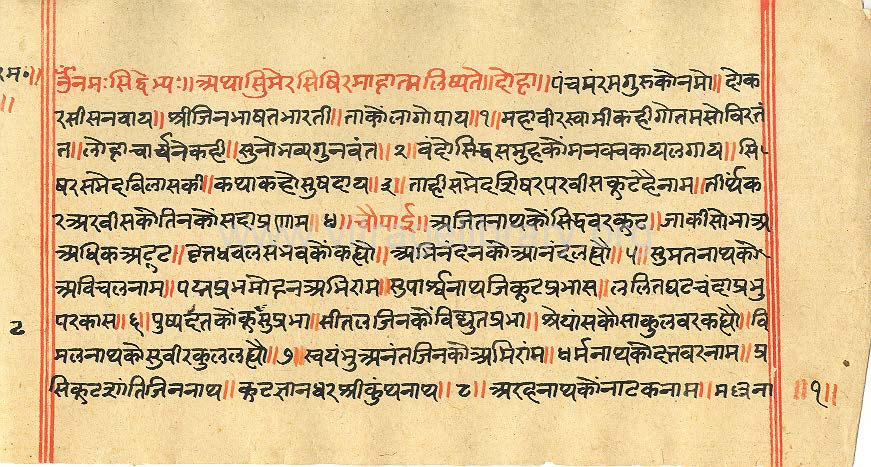 र्ननमःसिद्धेभ्यः॥अथासिमेरसिषिरमाहात्मलिष्यते॥दोहा॥पंचमंरमगुरुकौनमो॥दोक
रसीसनवाय॥श्रीजिनभाषतभारती॥ताकौंलागोपाय॥१॥महावीरस्वामीकहीगोतमसोविरतं
त॥लोहाचार्यनेकही॥सुनोभव्यगुनवंत॥२॥वंदोसिद्धसमुहकौंमनवचकायलगाय॥सि
षरसमेदविलासकी॥कथाकहौसुषदाय॥३॥ताहीसमेदशिषरपरवीसकूटहैनाम॥तीर्थंक
रअरवीसकौतिनकौंसदाप्रणाम॥४॥चौपाई॥अजितनाथकौंसिद्धवरकूट॥जाकीसोभाअ
अधिकअटूट॥दत्तधवलसंभवकौंकह्यौ॥अभिनंदनकोआनंदलह्यौ॥५॥सुमतनाथकौ
अविचलनाम॥पद्मप्रभमोहनअभिराम॥सुपार्श्वनाथजिकूटप्रभास॥ललितघटचंदाप्रभु
परकास॥६॥पुष्पदंतकौंकुसुप्रभा॥सीतलजिनकौंविद्युतप्रभा॥श्रेयांसकौसाकुलवरकह्यौ॥वि
मलनाथकौसुवीरकुललह्यौ॥७॥स्वयंभुअनंतजिनकौअभिरांम॥धर्मनाथकौदत्तवरनाम॥प्र
सिकूटशांतिजिननाथ॥कूटज्ञानधरश्रीकुंथनाथ॥८॥अरहनाथकौंनाटकनाम॥मल्लना
॥१॥